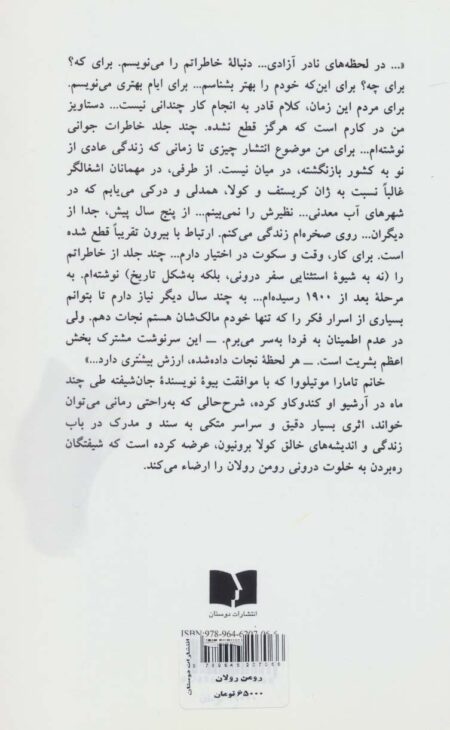 «... در لحظه‌های نادر آزادی... دنبالهٔ خاطراتم را می‌نویسم. برای که؟
برای چه؟ برای این‌که خودم را بهتر بشناسم... برای ایام بهتری می‌نویسم.
برای مردم این زمان، کلام قادر به انجام کار چندانی نیست... دستاویز
من در کارم است که هرگز قطع نشده. چند جلد خاطرات جوانی
نوشته‌ام... برای من موضوع انتشار چیزی تا زمانی که زندگی عادی از
نو به کشور بازنگشته، در میان نیست. از طرفی، در مهمانان اشغالگر
غالباً نسبت به ژان کریستف و کولا، همدلی و درکی می‌یابم که در
شهرهای آب معدنی... نظیرش را نمی‌بینم... از پنج سال پیش، جدا از
دیگران... روی صخره‌ام زندگی می‌کنم. ارتباط با بیرون تقریباً قطع شده
است. برای کار، وقت و سکوت در اختیار دارم... چند جلد از خاطراتم
را (نه به شیوهٔ استثنایی سفر درونی، بلکه به‌شکل تاریخ) نوشته‌ام. به
مرحلهٔ بعد از ۱۹۰۰ رسیده‌ام... به چند سال دیگر نیاز دارم تا بتوانم
بسیاری از اسرار فکر را که تنها خودم مالک‌شان هستم نجات دهم. ولی
در عدم اطمینان به فردا به‌سر می‌برم. ــ این سرنوشت مشترک بخش
اعظم بشریت است. ــ هر لحظهٔ نجات داده‌شده، ارزش بیشتری دارد...»
خانم تامارا موتیلووا که با موافقت بیوهٔ نویسندهٔ جان‌شیفته طی چند
ماه در آرشیو او کندوکاو کرده، شرح‌حالی که به‌راحتی رمانی می‌توان
خواند، اثری بسیار دقیق و سراسر متکی به سند و مدرک در باب
زندگی و اندیشه‌های خالق کولا برونیون، عرضه کرده است که شیفتگان
ره‌بردن به خلوت درونی رومن رولان را ارضاء می‌کند.
انتشارات دوستان
ISBN:978-964-6207-
انتشارات دوستان
رومن رولان
۶۵۰۰۰ تومان